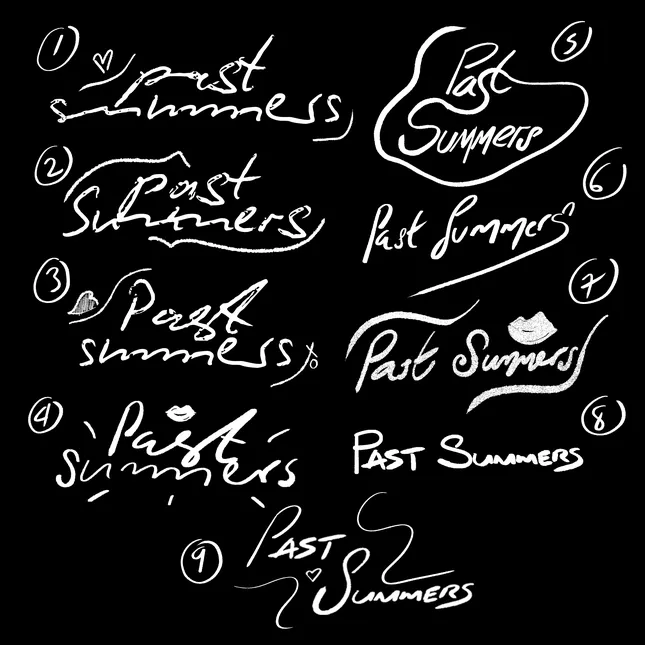 1
past
summers
2
Past
Summers
3
Past
summers
xo
4
Past
summers
5
Past
Summers
6
Past Summers
7
Past Summers
8
PAST SUMMERS
9
PAST
SUMMERS